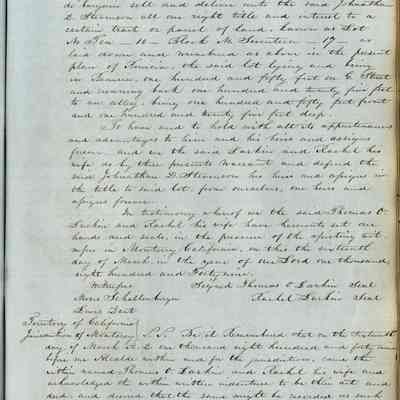 do bargain sell and deliver unto the said Johnathan
D. Stevenson all our right title and interest to a
certain tract or parcel of land, known as Lot
No Ten – 10 – Block No Seventeen – 17 – as
laid down and marked as above in the present
plan of Benicia, the said lot lying and being
in Benicia, one hundred and fifty feet on G. Street
and running back one hundred and twenty five feet
to an alley, being one hundred and fifty feet front
and one hundred and twenty five feet deep.
To have and to hold with all its appurtenances
and advantages to him and his heirs and assigns
forever, and we the said Larkin and Rachel his
wife do by these presents Warrant and defend the
said Johnathan D. Stevenson his heirs and assigns in
the title to said lot, from ourselves, our heirs and
assigns forever.
In testimony whereof we the said Thomas O.
Larkin and Rachel his wife have hereunto set our
hands and seals, in the presence of the
in Monterey California, on this the
day of March in the year of our Lord one thousand
eight hundred and Forty nine.
Witness Signed Thomas O Larkin Seal
Rachel Larkin Seal
Lewis Dent
Territory of California
Jurisdiction of Monterey S.S. Be it Remembered that on the
day of March A.D. one thousand eight hundred and forty nine
before me Alcalde within and for the jurisdiction, came the
within named Thomas O Larkin and Rachel his wife and
acknowledged the within written indenture to be their act and
deed and desired that the same might be recorded as such